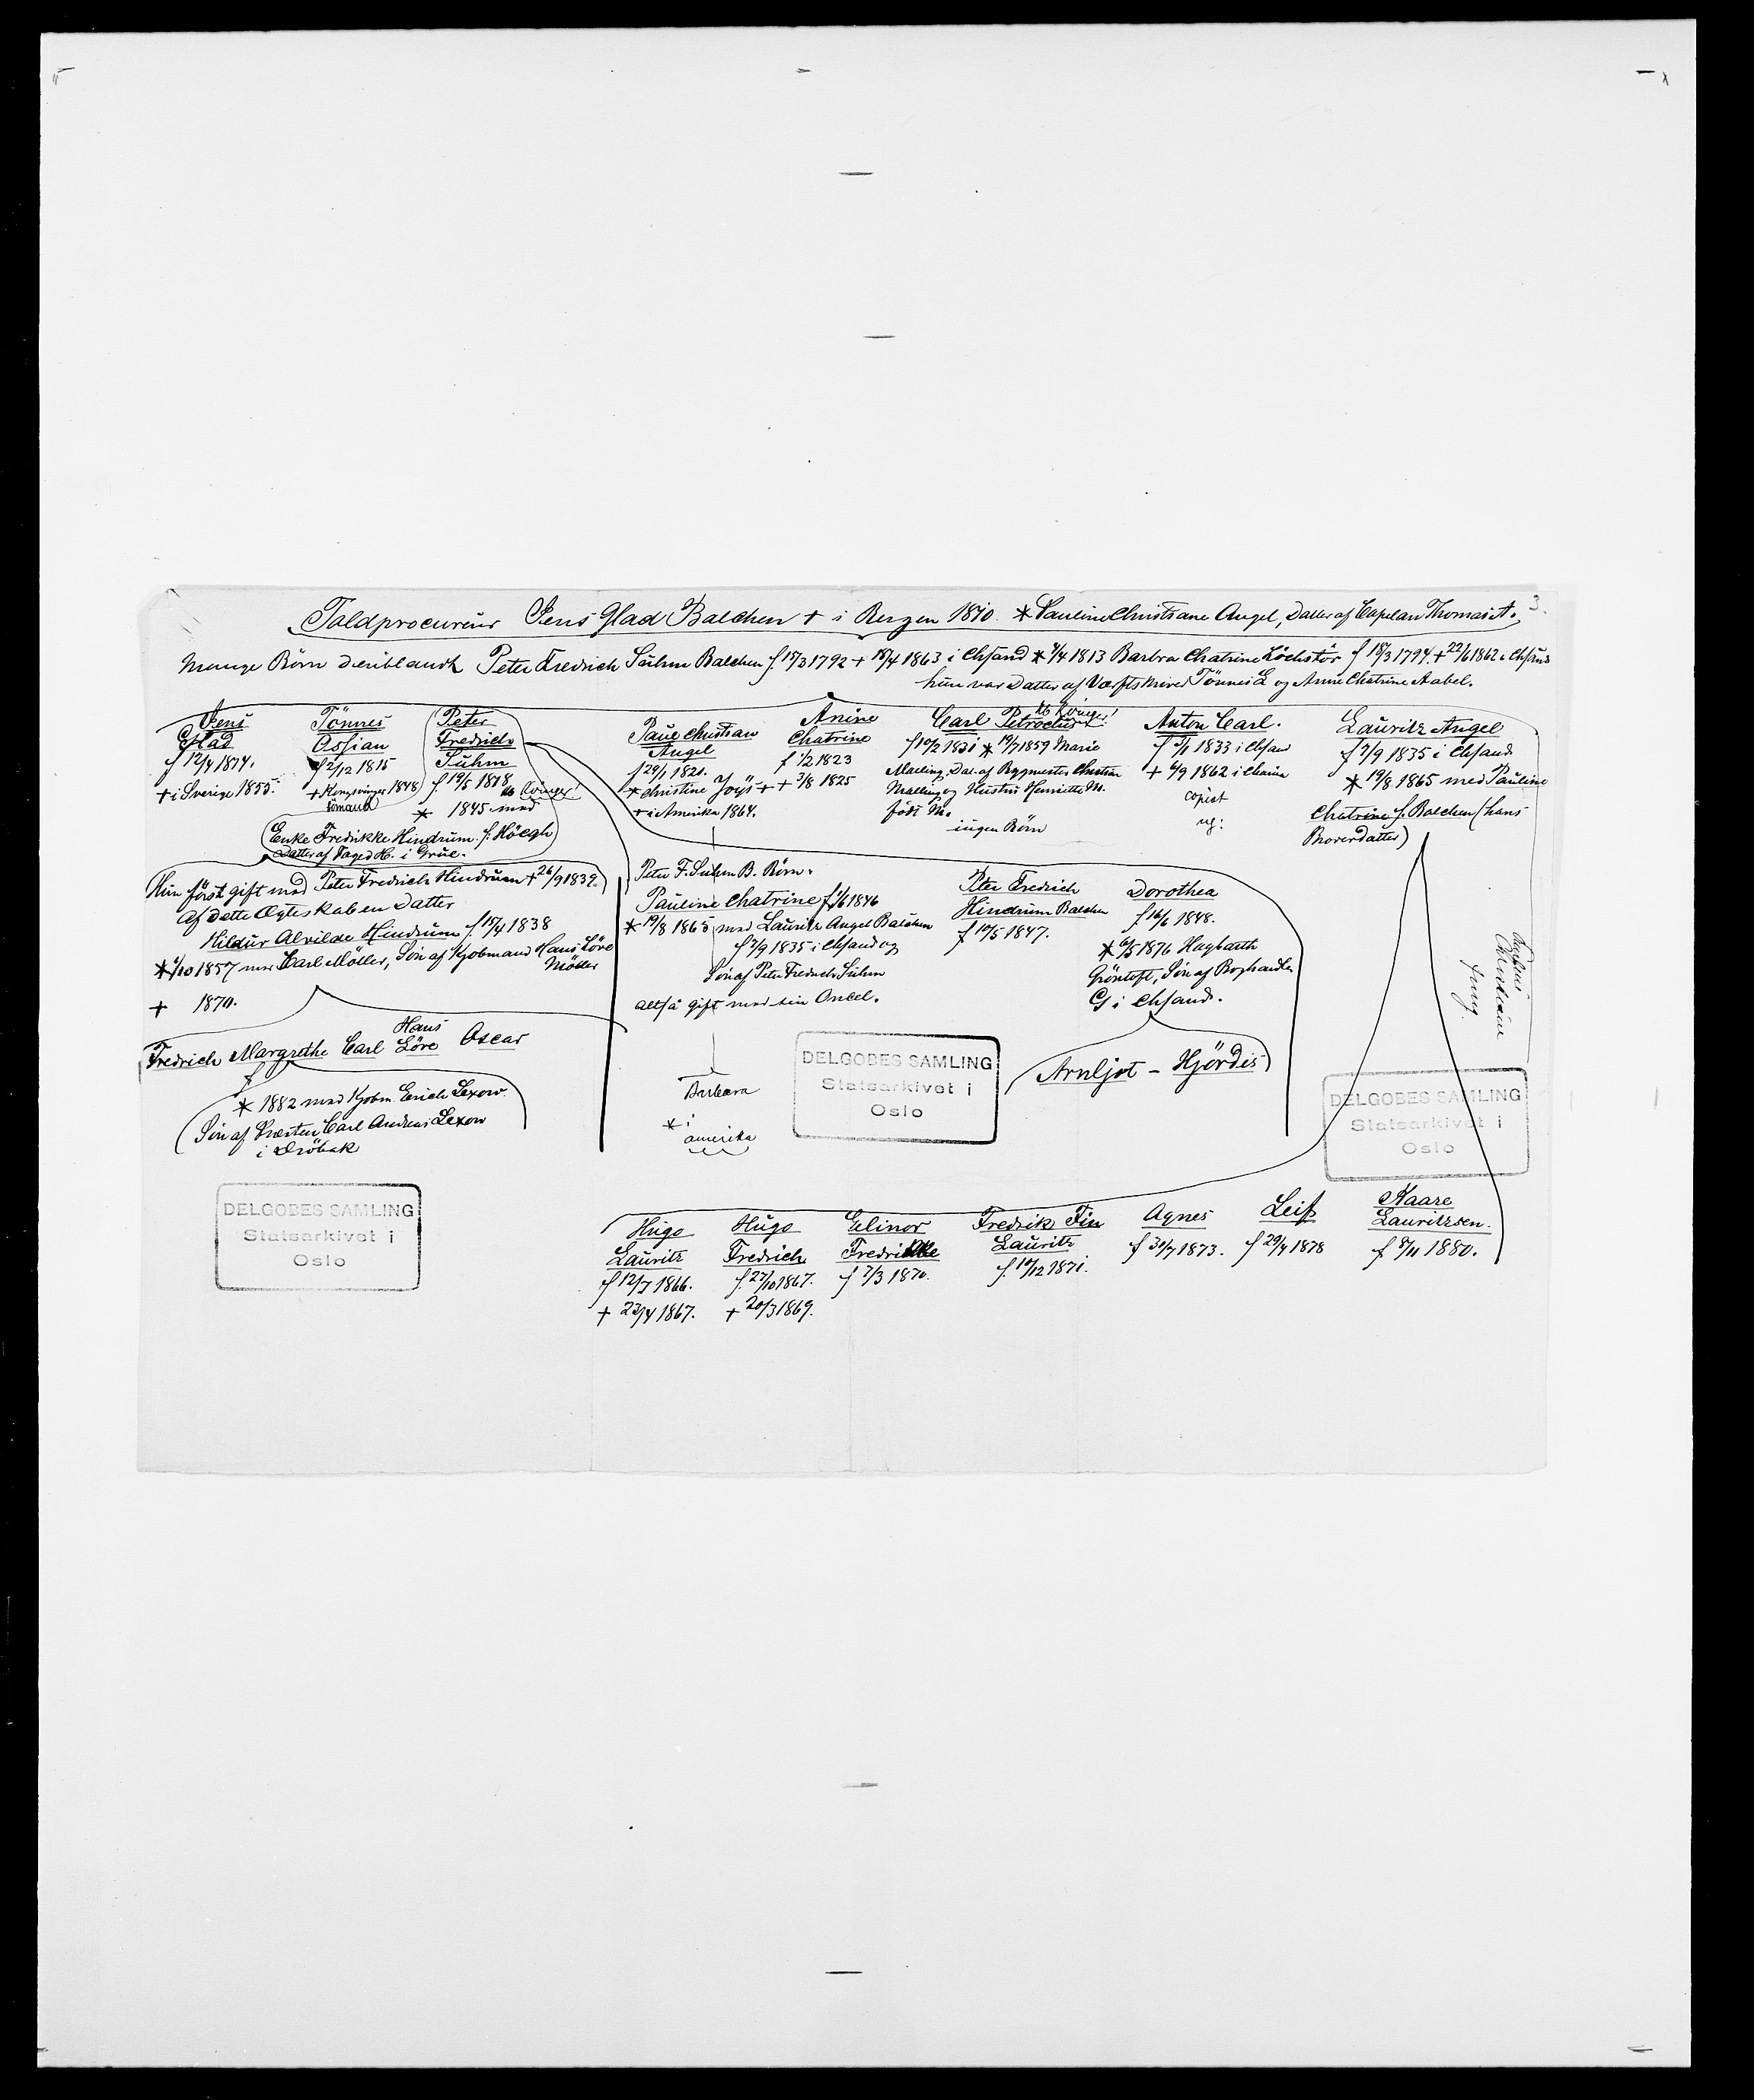 3.
Toldprocureur Jens Glad Balchen + i Bergen 1810. * Pauline Christiane Angel, Datter af Capelan Thomas A.
Mange Börn deriblandt Peter Fredrich Suhm Balchen f. 15/3 1792 + 18/4 1863 i Chsand * 1/4 1813 Barbra Chatrine Löchstör f 18/3 1794. + 22/6 1862 i Chsand
hun var Datter af Tönnes L og Anne Chatrine Aabel.
Jens
Glad
f 12/4 1814.
+ i Sverige 1855.
Tönnes
Ossian
f 2/12 1815
+ Kongsvinger 1848
Peter
Fredrich
Suhm
f 19/5 1818
* 1845 med
Enke Fredrikke Hindrum f. Höegh
Datter af Foged H. i Grue.
Paul Christian
Angel
f 29/1 1821.
* Christine +
+ i Amerika 1864.
Anine
Chatrine
f 1/2 1823
+ 3/8 1825
Carl Petroclus
f 10/2 1831 * 19/7 1859 Marie
Malling, Dat. af Bygmester Christian
Malling og Hustru Henriette M.
födt M.
ingen Börn
Anton Carl.
f 5/1 1833 i Chsand
+ 6/9 1862 i
copist
ug:
Lauritz Angel
f 7/9 1835 i Chsand
* 19/8 1865 med Pauline
Chatrine f. Balchen (hans
Broverdatter)
Hun först gift med Peter Fredrich Hindrum + 26/9 1839.
Af dette Ægteskab en Datter
Hildur Alvilde Hindrum f. 15/4 1838
* 1/10 1857 med Carl Möller, Sön af Kjobmand Hans Löve
Möller
+ 1870.
Fredrich Margrethe Carl Hans
Löve Oscar
* 1882 med Kjobm. Erich Lexow
Sön af Præsten Carl Andreas Lexow
i Dröbak
Peter F. Suhm B. Börn.
Pauline Chatrine f 1/6 1846
* 19/8 1865 med Lauritz Angel Balchen
f 7/9 1835 i Chsand og
Sön af Peter Fredrich Suhm
altså gift med sin Onkel.
Barbara
* i
amerika
Peter Fredrich
Hindrum Balchen
f 10/5 1847.
Dorothea
f 16/6 1848.
* 6/5 1876 Hagbarth
Gröntoft, Sön af Boghandler
G i Chsand.
Arnljot – Hjördis
DELGOBES SAMLING
Statsarkivet i
Oslo
DELGOBES SAMLING
Statsarkivet i
Oslo
DELGOBES SAMLING
Statsarkivet i
Oslo
Hugo
Lauritz
f 12/7 1866.
+ 23/4 1867.
Hugo
Fredrich
f. 27/10 1867.
+ 20/3 1869.
Elinor
Fredrikke
f 7/3 1870.
Fredrik Fin
Lauritz
f. 10/12 1871.
Agnes
f 30/7 1873.
Leif
f 29/4 1878
Kaare
Lauritzsen.
f 8/11 1880.